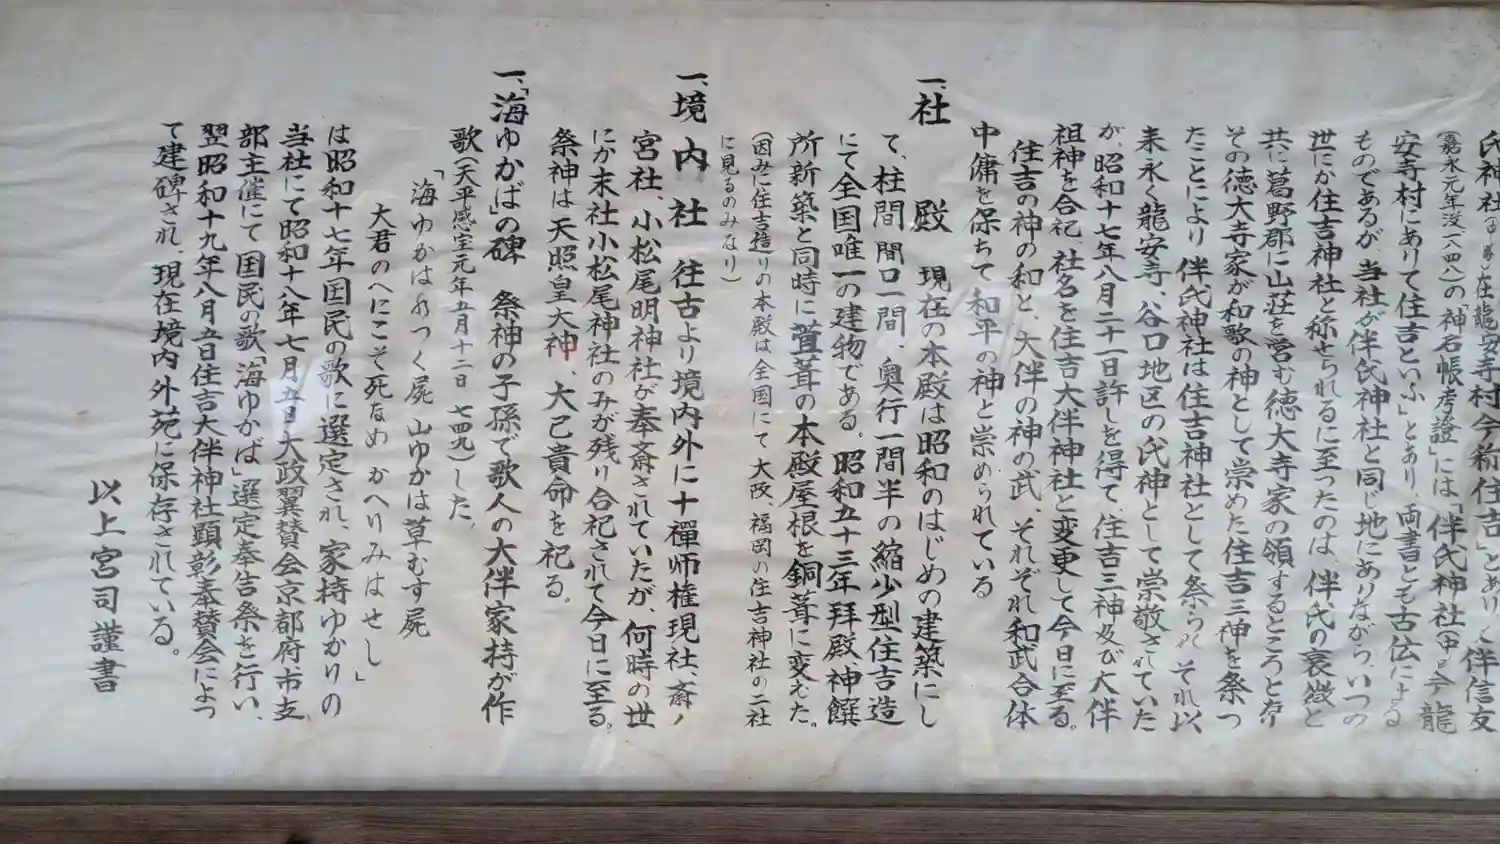 氏神社
在龍安寺村今称住吉」とあり、伴信友
(嘉永元年没一八四八)の神名帳考證」には「伴氏神社(中略)今龍
安寺村にありて住吉といふ」とあり、両書とも古伝による
ものであるが、当社が伴氏神社と同じ地にありながら、いつの
世にか住吉神社と称せられるに至ったのは、伴氏の衰微と
共に葛野郡に山荘を営む徳大寺家の領するところとなり
その徳大寺家が和歌の神として崇めた住吉三神を祭っ
たことにより、伴氏神社は住吉神社として祭られ、それ以
来永く龍安寺、谷口地区の氏神として崇敬されていた
が、昭和十七年八月二十一日許しを得て、住吉三神及び大伴
祖神を合祀、社名を住吉大伴神社と変更して今日に至る。
住吉の神の和と、大伴の神の武、それぞれ和武合体
中庸を保ちて和平の神と崇められている
一、社殿 現在の本殿は昭和のはじめの建築にし
て、柱間、間口一間、奥行一間半の縮少型住吉造
にて全国唯一の建物である。昭和五十三年拝殿、神饌
所新築と同時に萱葺の本殿屋根を銅葺に変えた。
(因みに住吉造りの本殿は全国にて大阪 福岡の住吉神社の二社
に見るのみなり)
一、境内社 往古より境内外に十禪师権現社、斎ノ
宮社、小松尾明神社が奉斎されていたが、何時の世
にか末社小松尾神社のみが残り合祀されて今日に至る。
祭神は天照皇大神、大己貴命を祀る。
一、「海ゆかば」の碑 祭神の子孫で歌人の大伴家持が作
歌(天平感宝元年五月十二日 七四九)した、
「海ゆかはみつく屍 山ゆかは草むす屍
大君のへにこそ死なめ かへりみはせし」
は昭和十七年国民の歌に選定され、家持ゆかりの
当社にて昭和十八年七月五日大政翼賛会京都府市支
部主催にて国民の歌「海ゆかば」選定奉告祭を行い、
翌昭和十九年八月五日住吉大伴神社顕彰奉賛会によっ
て建碑され、現在境内外苑に保存されている。
以上宮司謹書